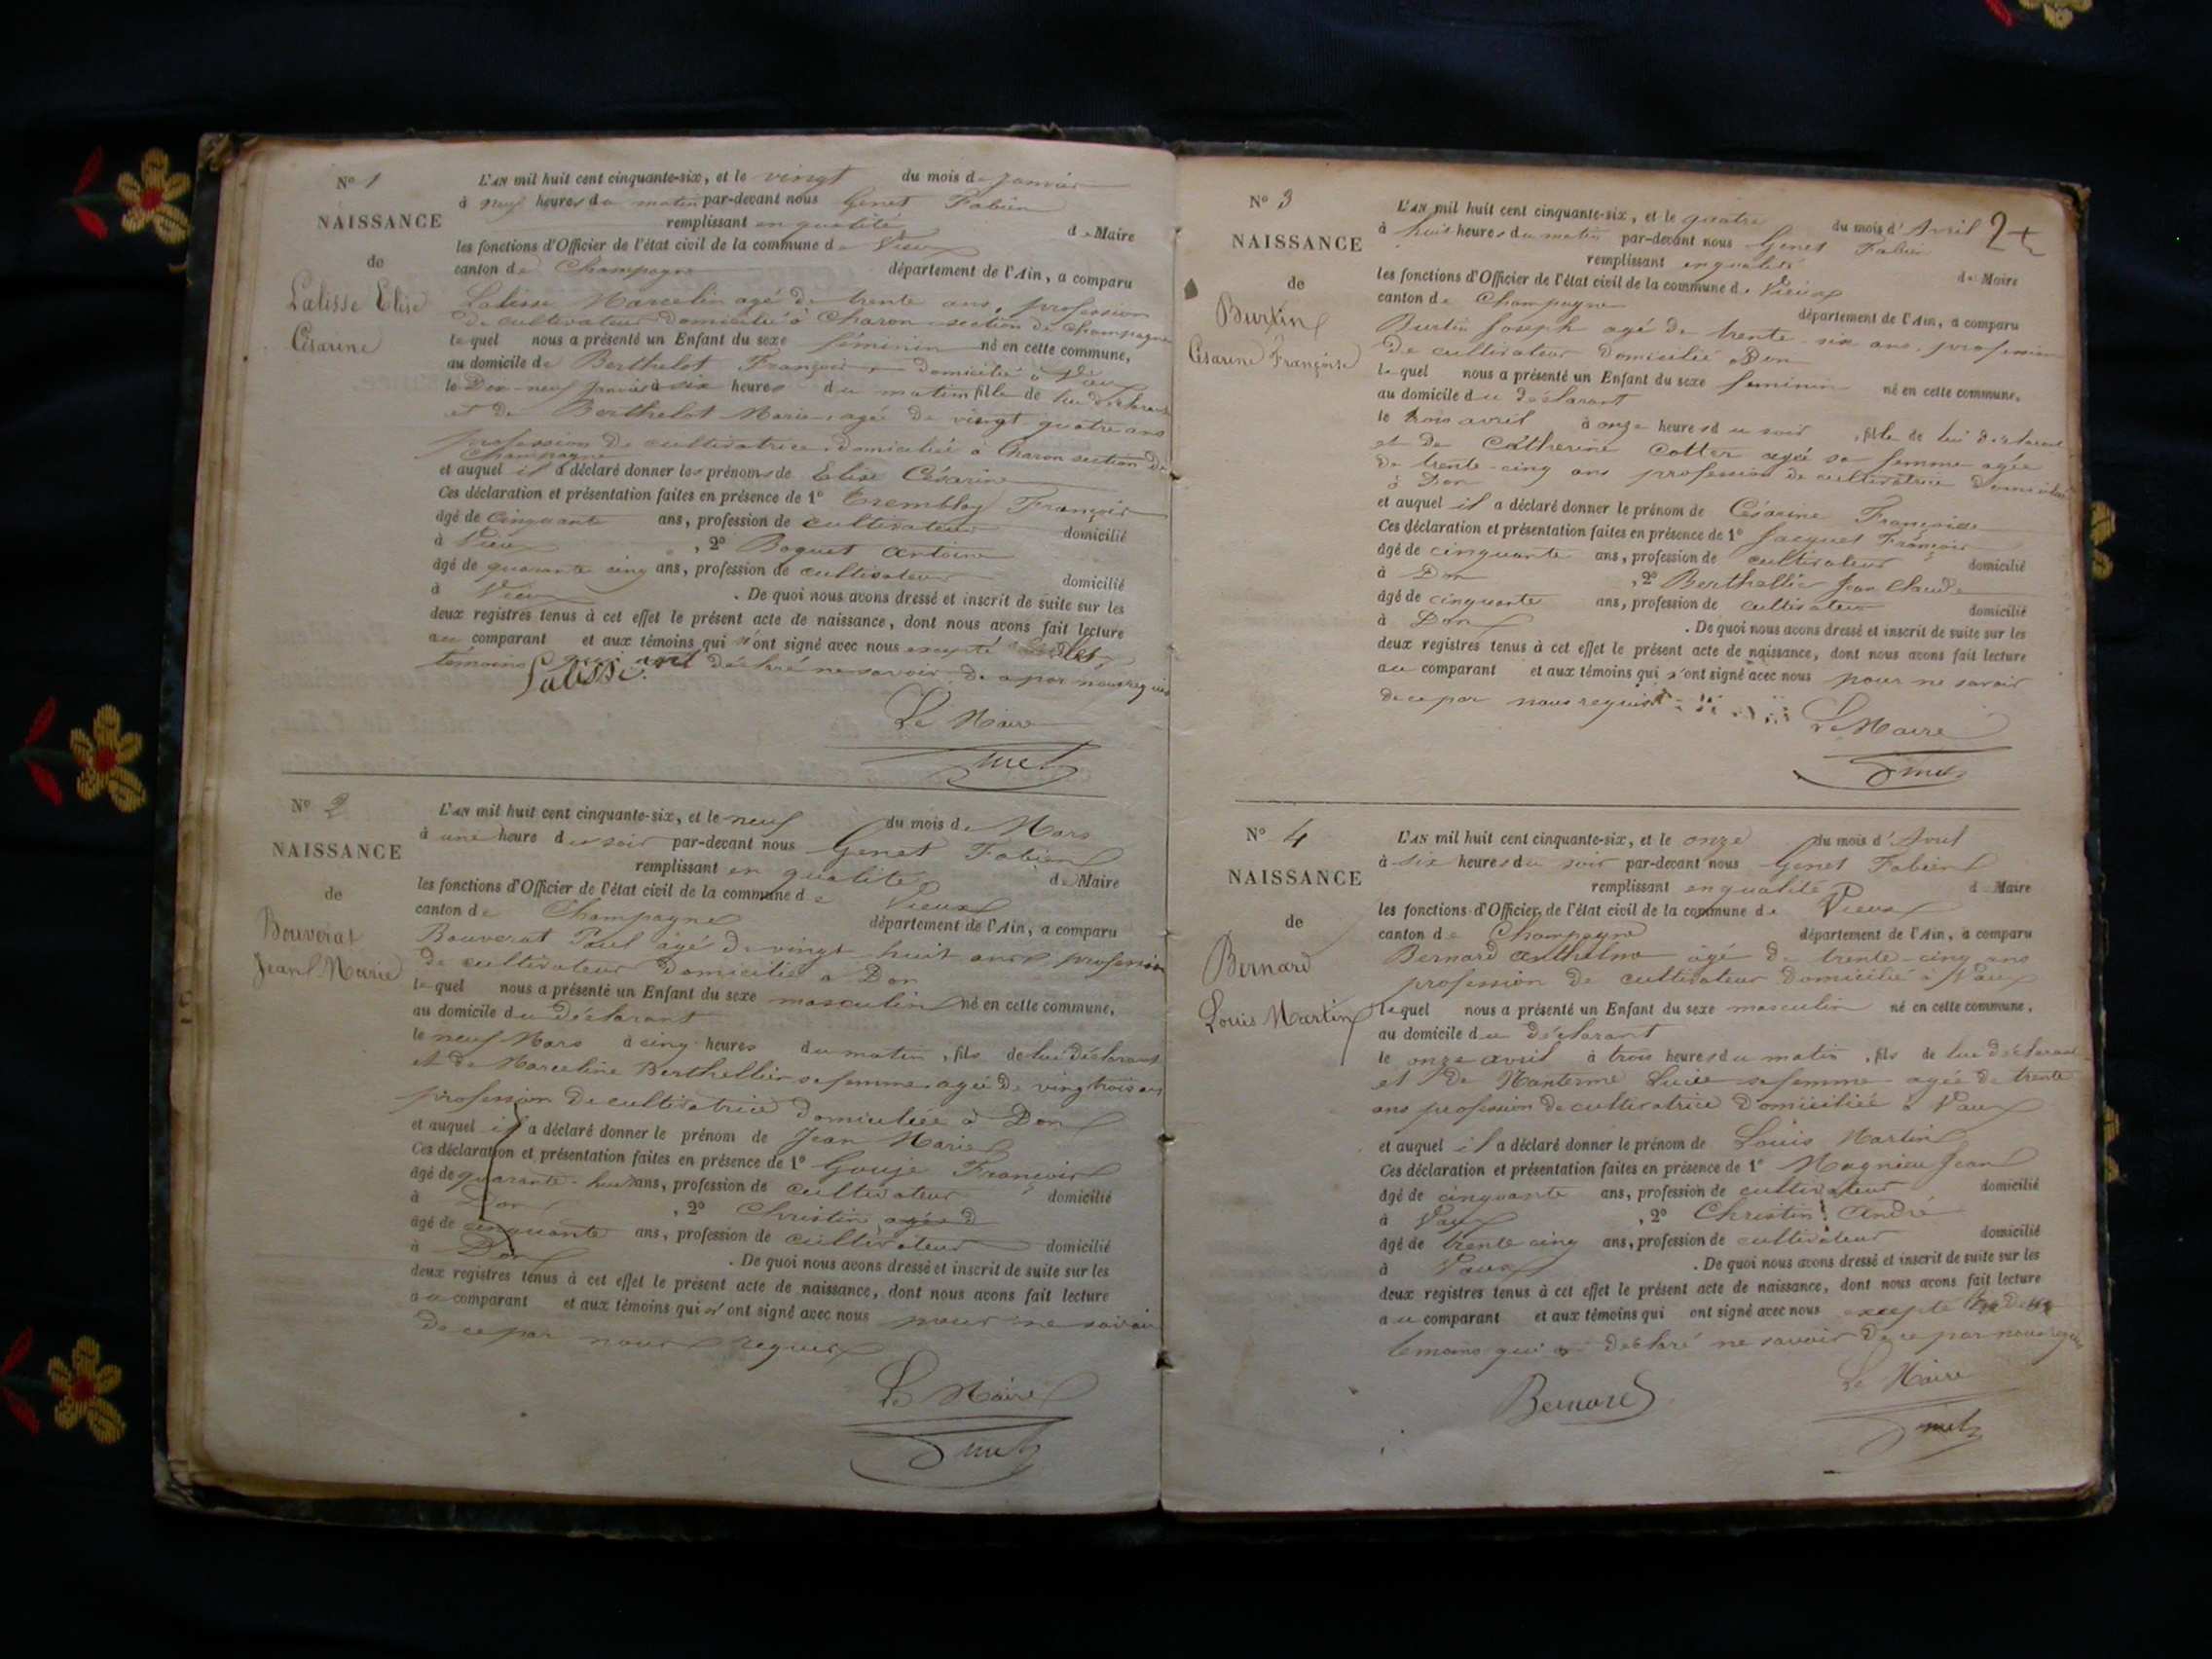 N° 1
NAISSANCE
de
Lalisse Elise
Césarine
L'AN mil huit cent cinquante-six, et le vingt du mois de janvier
à neuf heures du matin par-devant nous Genet Fabien
remplissant en qualité de Maire
les fonctions d'Officier de l'état civil de la commune de Vieux
canton de Champagne département de l'Ain, a comparu
Lalisse Marcelin agé de trente ans, profession
de cultivateur domicilié à Charon section de Champagne
lequel nous a présenté un Enfant du sexe féminin né en cette commune,
au domicile de Berthelot François domicilié à Vaux
le Dix-neuf janvier à six heures du matin fille de lui déclarant
et de Berthelot Marie agée de vingt quatre ans
profession de cultivatrice domiciliée à Charon section de
Champagne
et auquel il a déclaré donner les prénoms de Elise Césarine
Ces déclaration et présentation faites en présence de 1° Tremblay François
âgé de cinquante ans, profession de cultivateur domicilié
à Vieux , 2° Boquet Antoine
âgé de quarante cinq ans, profession de cultivateur domicilié
à Vieux . De quoi nous avons dressé et inscrit de suite sur les
deux registres tenus à cet effet le présent acte de naissance, dont nous avons fait lecture
au comparant et aux témoins qui n'ont signé avec nous excepté les
témoins qui ont déclaré ne savoir de ce par nous requis
Lalisse
Le Maire
Genet
N° 2
NAISSANCE
de
Bouverat
Jean Marie
L'AN mil huit cent cinquante-six, et le neuf du mois de Mars
à une heure du soir par-devant nous Genet Fabien
remplissant en qualité de Maire
les fonctions d'Officier de l'état civil de la commune de Vieux
canton de Champagne département de l'Ain, a comparu
Bouverat Paul âgé de vingt huit ans profession
de cultivateur domicilié a Don
lequel nous a présenté un Enfant du sexe masculin né en cette commune,
au domicile du déclarant
le neuf Mars à cinq heures du matin, fils de lui déclarant
et de Marceline Berthellier sa femme agée de vingt trois ans
profession de cultivatrice domiciliée à Don
et auquel il a déclaré donner le prénom de Jean Marie
Ces déclaration et présentation faites en présence de 1° Gouje François
âgé de quarante-huit ans, profession de cultivateur domicilié
à Don , 2° Christin agé d
âgé de cinquante ans, profession de cultivateur domicilié
à Don . De quoi nous avons dressé et inscrit de suite sur les
deux registres tenus à cet effet le présent acte de naissance, dont nous avons fait lecture
au comparant et aux témoins qui n'ont signé avec nous pour ne savoir
de ce par nous requis
Le Maire
Genet
2
N° 3
NAISSANCE
de
Burtin
Césarine Françoise
L'AN mil huit cent cinquante-six, et le quatre du mois d'Avril
à huit heures du matin par-devant nous Genet Fabien
remplissant en qualité de Maire
les fonctions d'Officier de l'état civil de la commune de Vieux
canton de Champagne département de l'Ain, a comparu
Burtin Joseph agé de trente six ans, profession
de cultivateur domicilié a Don
lequel nous a présenté un Enfant du sexe feminin né en cette commune,
au domicile du déclarant
le trois avril à onze heures du soir, fille de lui déclarant
et de Catherine Cotter sa femme agée
de trente-cinq ans profession de cultivatrice domiciliée
à Don
et auquel il a déclaré donner le prénom de Césarine Françoise
Ces déclaration et présentation faites en présence de 1° Jacquet François
âgé de cinquante ans, profession de cultivateur domicilié
à Don , 2° Berthellier Jean Claude
âgé de cinquante ans, profession de cultivateur domicilié
à Don . De quoi nous avons dressé et inscrit de suite sur les
deux registres tenus à cet effet le présent acte de naissance, dont nous avons fait lecture
au comparant et aux témoins qui n'ont signé avec nous pour ne savoir
de ce par nous requis
Le Maire
Genet
N° 4
NAISSANCE
de
Bernard
Louis Martin
L'AN mil huit cent cinquante-six, et le onze du mois d'Avril
à six heures du soir par-devant nous Genet Fabien
remplissant en qualité d Maire
les fonctions d'Officier de l'état civil de la commune de Vieux
canton de Champagne département de l'Ain, a comparu
Bernard Anthelme âgé de trente-cinq ans
profession de cultivateur domicilié à Vaux
lequel nous a présenté un Enfant du sexe masculin né en cette commune,
au domicile du déclarant
le onze avril à trois heures du matin, fils de lui déclarant
et de Manterme Lucie sa femme agée de trente
ans profession de cultivatrice domiciliée à Vaux
et auquel il a déclaré donner le prénom de Louis Martin
Ces déclaration et présentation faites en présence de 1° Magnieu Jean
âgé de cinquante ans, profession de cultivateur domicilié
à Vaux , 2° Christin André
âgé de trente cinq ans, profession de cultivateur domicilié
à Vaux . De quoi nous avons dressé et inscrit de suite sur les
deux registres tenus à cet effet le présent acte de naissance, dont nous avons fait lecture
au comparant et aux témoins qui ont signé avec nous excepté
temoins qui déclaré ne savoir de ce par nous requis
Bernard
Le Maire
Genet